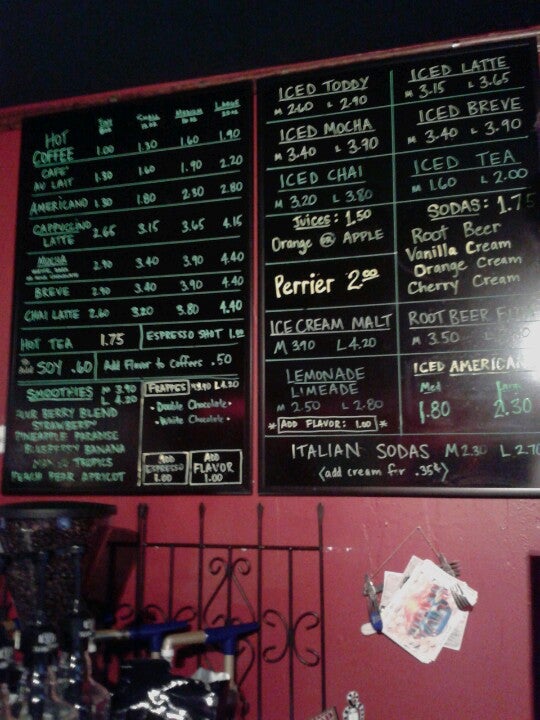 SMALL MEDIUM LARGE
HOT COFFEE 1.00 1.30 1.60 1.90
CAFE' AU LAIT 1.30 1.60 1.90 2.20
AMERICANO 1.30 1.80 2.30 2.80
CAPPUCCINO
LATTE 2.65 3.15 3.65 4.15
MOCHA 2.90 3.40 3.90 4.40
BREVE 2.90 3.40 3.90 4.40
CHAI LATTE 2.60 3.20 3.80 4.40
HOT TEA 1.75 ESPRESSO SHOT 1.00
SOY .60 Add Flavor to Coffees .50
SMOOTHIES M 3.90
L 4.20
BERRY BLEND
STRAWBERRY
PINEAPPLE PARADISE
BLUEBERRY BANANA
TROPICS
PEACH PEAR APRICOT
FRAPPES L 4.20
• Double Chocolate •
• White Chocolate •
ADD ESPRESSO 1.00
ADD FLAVOR 1.00
ICED TODDY
M 2.60 L 2.90
ICED MOCHA
M 3.40 L 3.90
ICED CHAI
M 3.20 L 3.80
Juices: 1.50
Orange OR APPLE
Perrier 2.00
ICE CREAM MALT
M 3.90 L 4.20
LEMONADE
LIMEADE
M 2.50 L 2.80
* ADD FLAVOR: 1.00 *
ICED LATTE
M 3.15 L 3.65
ICED BREVE
M 3.40 L 3.90
ICED TEA
M 1.60 L 2.00
SODAS: 1.75
Root Beer
Vanilla Cream
Orange Cream
Cherry Cream
ROOT BEER
M 3.50
ICED AMERICAN
Med
1.80 2.30
ITALIAN SODAS M 2.30 L 2.70
(add cream for .35¢)